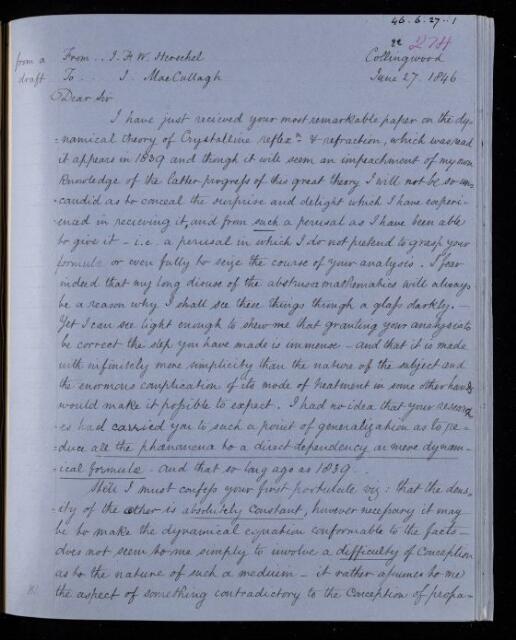 46.6.27..1
22 274
from a From .. J. F. W. Herschel Collingwood
draft. To ... J. MacCullagh June 27. 1846
Dear Sir
I have just received your most remarkable paper on the dy-
-namical theory of Crystalline reflexn & refraction, which was read
it appears in 1839 and though it will seem an impeachment of my own
knowledge of the latter progress of this great theory I will not be so un-
-candid as to conceal the surprise and delight which I have experi-
-enced in recieving it, and from such a perusal as I have been able
to give it - i.e. a perusal in which I do not pretend to grasp your
formulæ or even fully to seize the course of your analysis. I fear
indeed that my long disuse of the abstruse mathematics will always
be a reason why I shall see these things through a glass darkly. -
Yet I can see light enough to shew me that granting your analysis to
be correct the step you have made is immense - and that it is made
with infinitely more simplicity than the nature of the subject and
the enormous complication of its mode of treatment in some other hands
would make it possible to expect. I had no idea that your research
-es had carried you to such a point of generalization as to re-
-duce all the phænomena to a direct dependency on mere dynam-
-ical formulæ - and that so long ago as 1839.
Still I must confess your first postulate viz: that the dens-
-ity of the æther is absolutely constant, however necessary it may
be to make the dynamical equation conformable to the facts -
does not seem to me simply to involve a difficulty of Conception
as to the nature of such a medium - it rather assumes to me
the aspect of something contradictory to the Conception of propa-